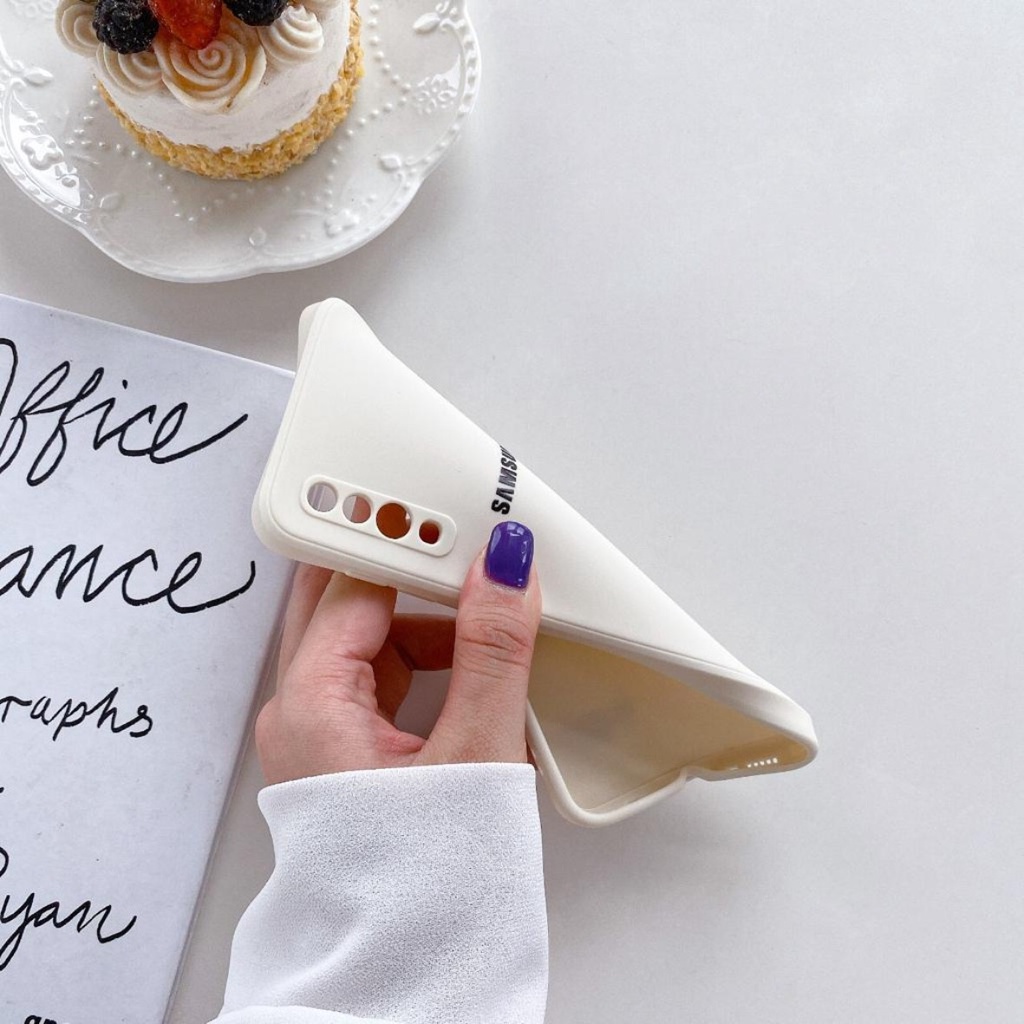 Office
ance
raphs
yan
SAMSU